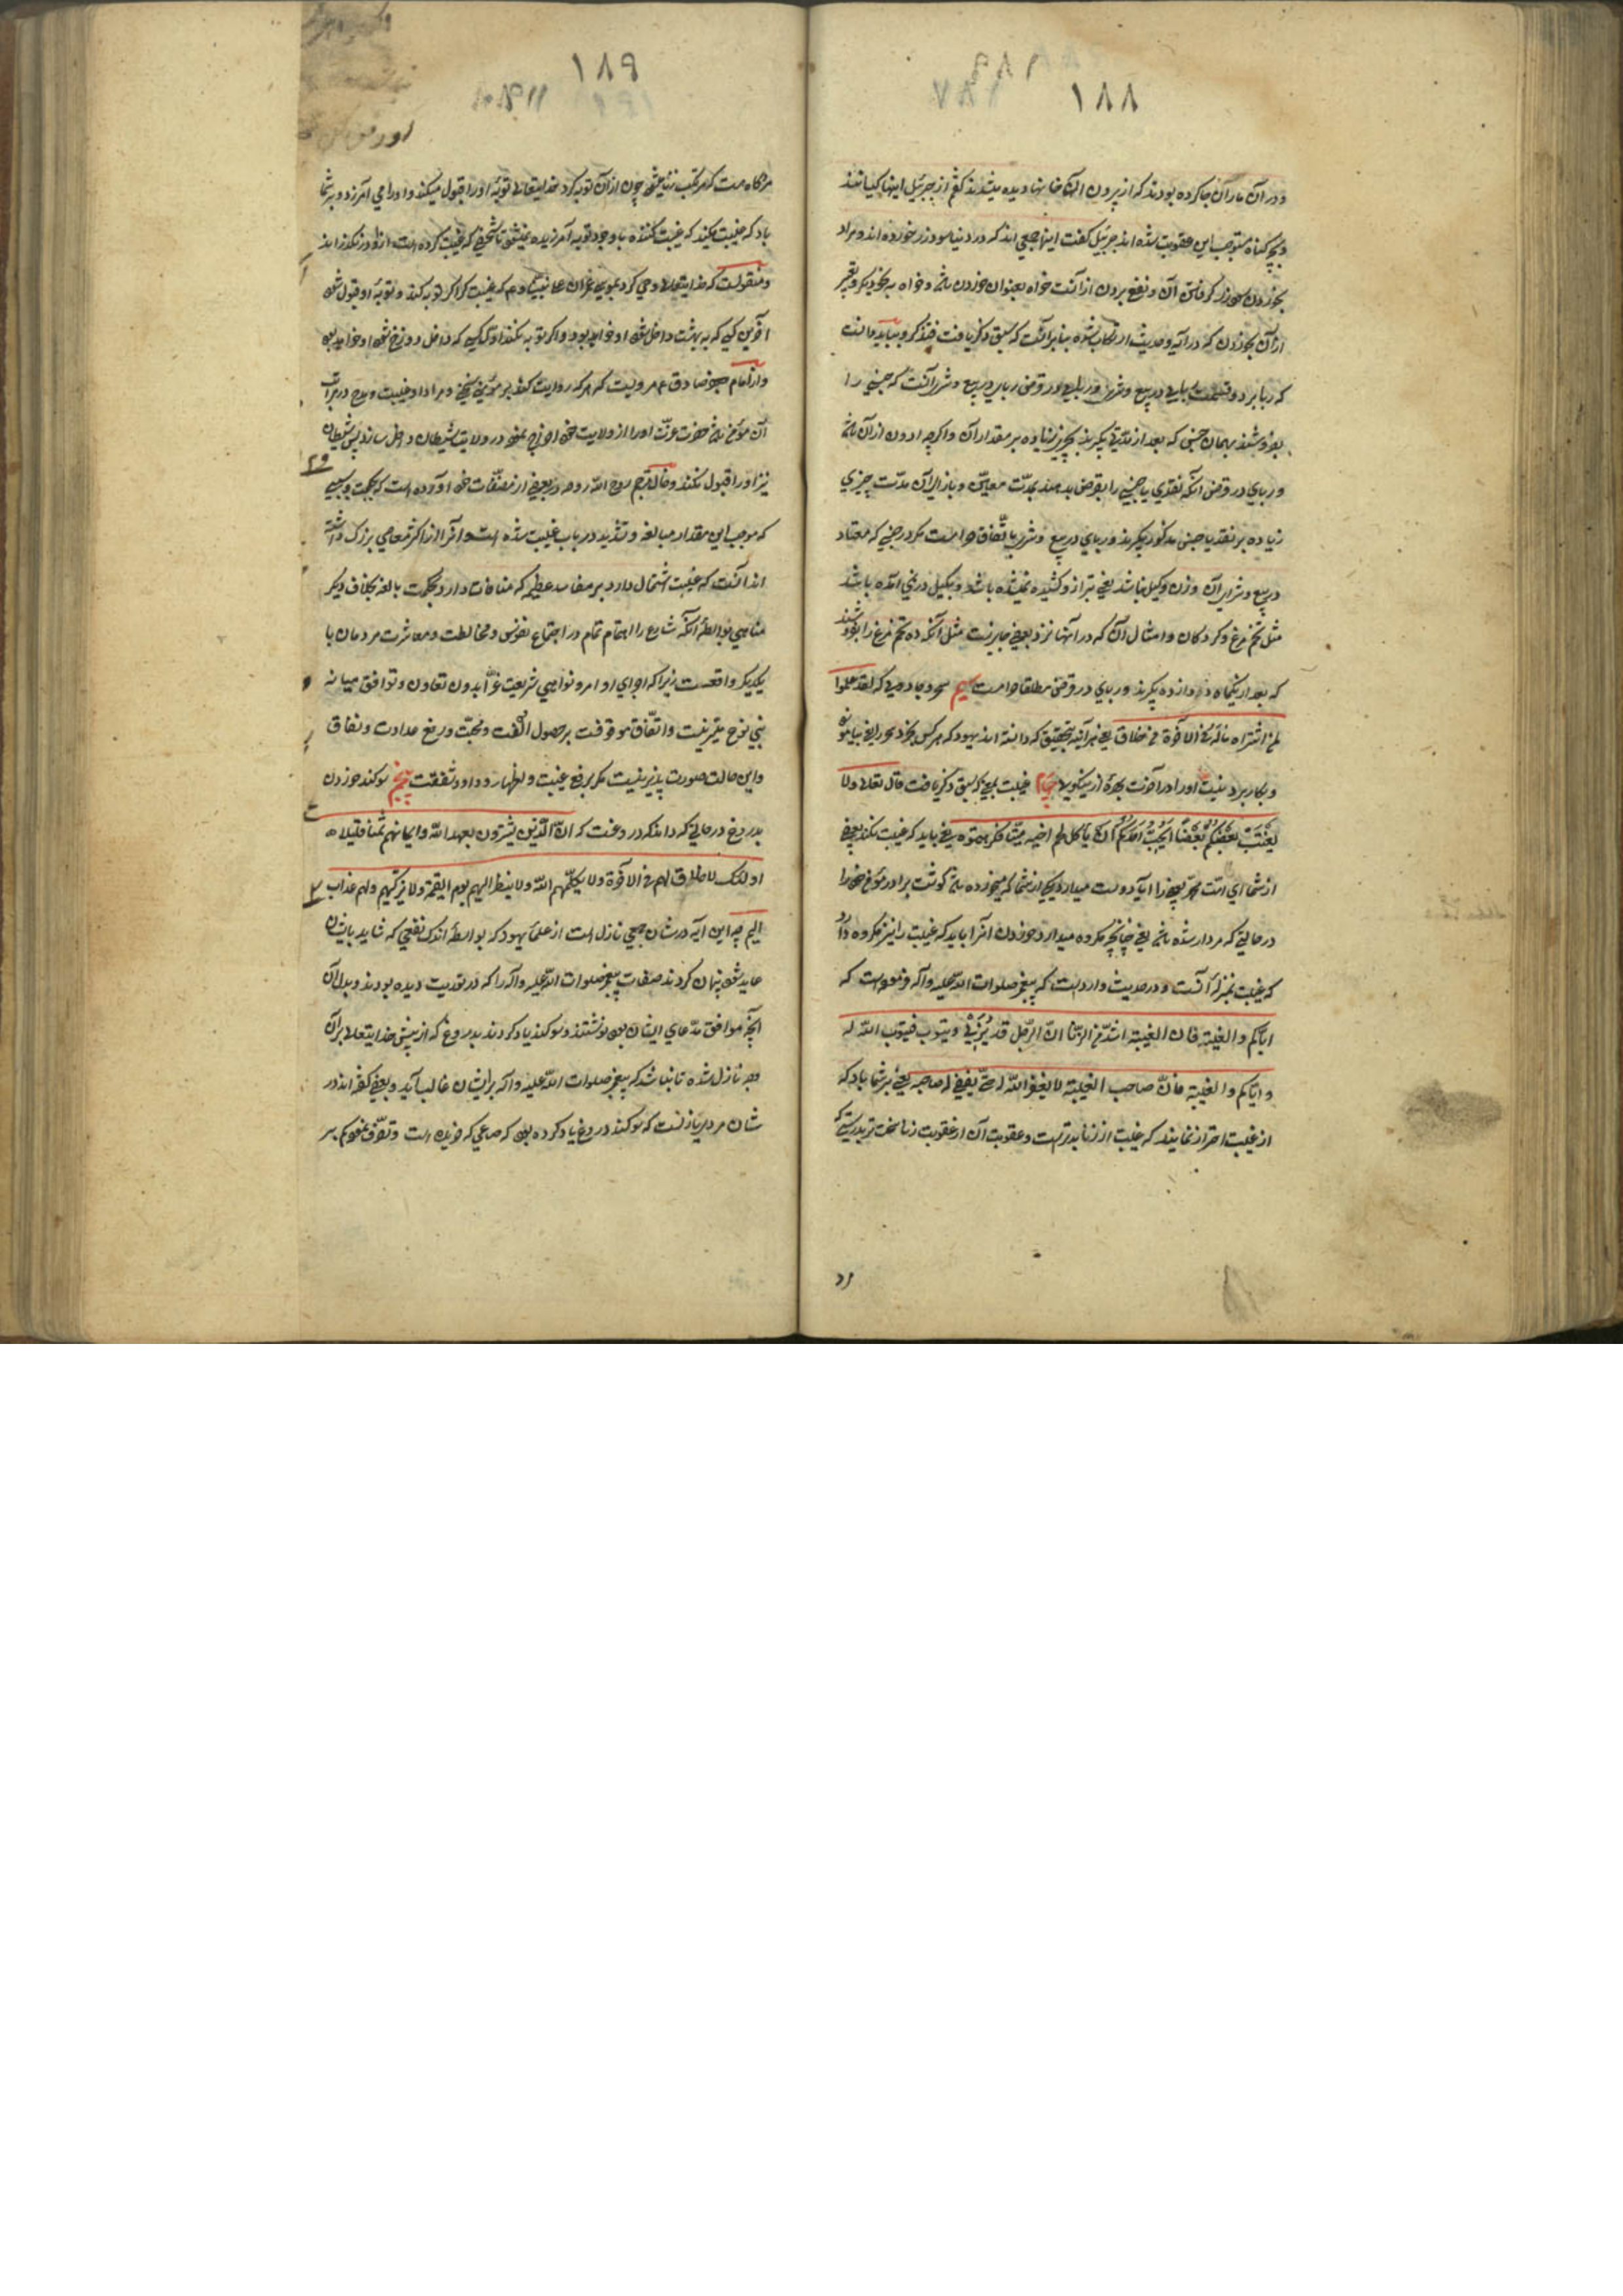 ١٨٨
و در آن ماران جا کرده بودند که از بیرون آن خانها دیده میشدند گفتم از جبرئیل اینها کیانند
و بچه گناه مستوجب این عقوبت شده اند جبرئیل گفت اینها جمعی اند که در دنیا سود زر خورده اند و مراد
بخوردن سود زر گرفتن آن و نفع بردن از آنست خواه بعنوان خوردن باشد و خواه به نحو دیگر و تعبیر
از آن بخوردن که در آیه و حدیث ارتکاب شده بنابر آنست که سبق ذکر یافت فتذکر و بباید دانست
که ربا بر دو قسمست ربای در بیع و شری و ربای در قرض ربای در بیع و شری آنست که جنسی را
بفروشند بهمان جنس که بعد از مدتی بگیرند بچیزی زیاده بر مقدار آن و اگرچه ادون از آن باشد
و ربای در قرض آنکه نقدی یا جنسی را بقرض بدهند بمدت معین و بازای آن مدت چیزی
زیاده بر نقد یا جنس مذکور بگیرند و ربای در بیع و شری باتفاق حرامست مگر در جنسی که معتاد
در بیع و شرای آن وزن و کیل نباشد یعنی بترازو کشیده نمیشده باشد و بکیل در نمی آمده باشد
مثل تخم مرغ و گردکان و امثال آن که در آنها نزد بعضی جایز نیست مثل آنکه ده تخم مرغ را بفروشند
که بعد از یکماه دوازده بگیرند و ربای در قرض مطلقا حرامست سیم سحر و جادوست که لقد علموا
لمن اشتراه ماله فی الآخرة من خلاق یعنی هر آینه بتحقیق که دانسته اند یهود که هر کس بخرد سحر را یعنی بیاموزد
و بکار برد نیست او را در آخرت بهرهٔ از نیکویی چهارم غیبت بمعنی که سبق ذکر یافت قال تعالی ولا
یغتب بعضکم بعضا ایحب احدکم ان یأکل لحم اخیه میتا فکرهتموه یعنی باید که غیبت نکند بعضی
از شما ای امت محمد بعضی را آیا دوست میدارد یکی از شما که میخورده باشد گوشت برادر مؤمن خود را
در حالتی که مردار شده باشد یعنی چنانچه مکروه میدارد خوردن آنرا باید که غیبت را نیز مکروه دارد
که غیبت بمنزلهٔ آنست و در حدیث وارد است که پیغمبر صلوات الله علیه وآله فرموده است که
ایاکم والغیبة فان الغیبة اشد من الزنا ان الرجل قد یزنی ویتوب فیتوب الله له
و ایاکم والغیبة فان صاحب الغیبة لا یغفر الله له حتی یغفر له صاحبه یعنی بر شما باد که
از غیبت احتراز نمایید که غیبت از زنا بدتر است و عقوبت آن از عقوبت زنا سخت تر بدرستی که
١٨٩
هرگاه هست که مرتکب زنا میشود چون از آن توبه کرد خدایتعالی توبهٔ او را قبول میکند و او را می آمرزد و بر شما
باد که غیبت مکنید که غیبت کننده با وجود توبه آمرزیده نمیشود تا شخصی که غیبت کرده است از او درنگذراند
و منقولست که خدایتعالی وحی کرد بموسی بن عمران علی نبینا و علیه السلام که غیبت کن اگر توبه کند و توبهٔ او قبول شود
آخرین کسی که به بهشت داخل شود او خواهد بود و اگر توبه نکند اول کسی که داخل دوزخ شود او خواهد بود
و از امام جعفر صادق ع مرویست که هر که روایت کند بر مؤمنی سخنی و مراد او غیبت و مدح در مراتب
آن مؤمن باشد حضرت عزت او را از ولایت خود اخراج نموده در ولایت شیطان داخل سازد پس شیطان
نیز او را قبول نکند و خال مترجم روح الله روحه در بعضی از مصنفات خود آورده است که حکمت و سببی
که موجب این مقدار مبالغه و تشدید در باب غیبت شده است و آنرا از اکثر معاصی بزرگ داشته
اند آنست که غیبت اشتمال دارد بر مفاسد عظیمه که منافات دارد بحکمت بالغه بخلاف دیگر
مناهی بواسطهٔ آنکه شارع را اهتمام تمام در اجتماع نفوس و مخالطت و معاشرت مردمان با
یکدیگر واقعست زیرا که اجرای اوامر و نواهی شریعت غرّا بدون تعاون و توافق میانه
بنی نوع میسر نیست و اتفاق موقوفست بر حصول الفت و محبت و رفع عداوت و نفاق
و این حالت صورت پذیر نیست مگر برفع غیبت و اظهار وداد و شفقت پنجم سوکند خوردن
بدروغ در حالتی که داند که دروغست که ان الذین یشترون بعهد الله وایمانهم ثمنا قلیلا
اولئک لا خلاق لهم فی الآخرة ولا یکلمهم الله ولا ینظر الیهم یوم القیمة ولا یزکیهم ولهم عذاب
الیم چه این آیه در شان جمعی نازل است از علمای یهود که بواسطهٔ اندک نفعی که شاید بایشان
عاید شود پنهان کردند صفات پیغمبر صلوات الله علیه وآله را که در توریت دیده بودند و بدل آن
آنچه موافق مدعای ایشان بود نوشتند و سوکند یاد کردند بدروغ که از پیش خدایتعالی بر آن
وجه نازل شده تا نباشد که پیغمبر صلوات الله علیه وآله بر ایشان غالب آید و بعضی گفته اند در
شان مردی نازلست که سوکند دروغ یاد کرده بود که متاعی که خریده است و تصرف نموده ام بر